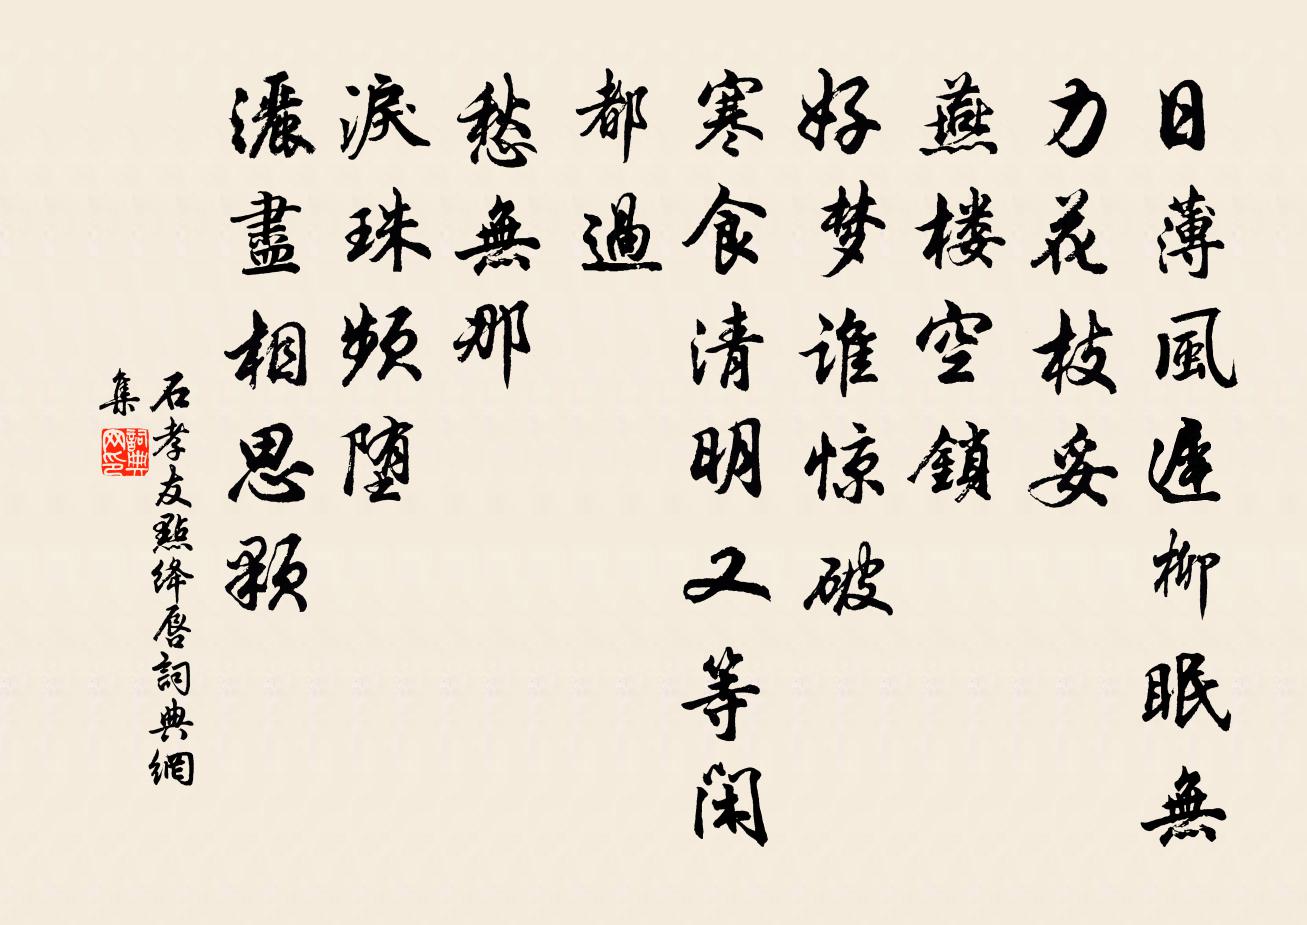 日薄風遲柳眠無
力花枝妥
燕楼空鎖
好梦谁惊破
寒食清明又等闲
都過
愁無那
淚珠頻堕
灑盡相思顆
石孝友點绛唇詞典網
集
詞典网印